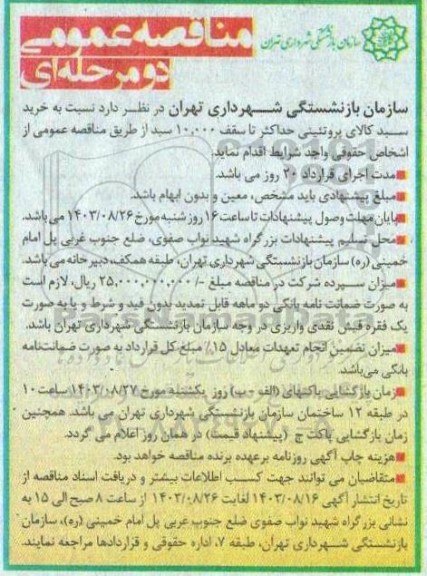 سازمان بازنشستگی شهرداری تهران
مناقصه عمومی
دو مرحله‌ای
سازمان بازنشستگی شهرداری تهران در نظر دارد نسبت به خرید
سبد کالای پروتئینی حداکثر تا سقف ۱۰,۰۰۰ سبد از طریق مناقصه عمومی از
اشخاص حقوقی واجد شرایط اقدام نماید.
■مدت اجرای قرارداد ۲۰ روز می باشد.
■مبلغ پیشنهادی باید مشخص، معین و بدون ابهام باشد.
■پایان مهلت وصول پیشنهادات تا ساعت ۱۶ روز شنبه مورخ ۱۴۰۳/۰۸/۲۶ می باشد.
■محل تسلیم پیشنهادات بزرگراه شهید نواب صفوی، ضلع جنوب غربی پل امام
خمینی (ره) سازمان بازنشستگی شهرداری تهران، طبقه همکف، دبیرخانه می باشد.
■میزان سپرده شرکت در مناقصه مبلغ /-۲۵,۰۰۰,۰۰۰,۰۰۰ ریال، لازم است
به صورت ضمانت نامه بانکی دو ماهه قابل تمدید بدون قید و شرط و یا به صورت
یک فقره فیش نقدی واریزی در وجه سازمان بازنشستگی شهرداری تهران باشد.
■میزان تضمین انجام تعهدات معادل ۱۵٪ مبلغ کل قرارداد به صورت ضمانت‌نامه
بانکی می‌باشد.
■زمان بازگشایی پاکتهای (الف-ب) روز یکشنبه مورخ ۱۴۰۳/۰۸/۲۷ ساعت ۱۰
در طبقه ۱۲ ساختمان سازمان بازنشستگی شهرداری تهران می باشد. همچنین
زمان بازگشایی پاکت ج (پیشنهاد قیمت) در همان روز اعلام می گردد.
■هزینه چاپ آگهی روزنامه برعهده برنده مناقصه خواهد بود.
■متقاضیان می توانند جهت کسب اطلاعات بیشتر و دریافت اسناد مناقصه از
تاریخ انتشار آگهی ۱۴۰۳/۰۸/۱۶ لغایت ۱۴۰۳/۰۸/۲۶ از ساعت ۸ صبح الی ۱۵ به
نشانی بزرگراه شهید نواب صفوی ضلع جنوب غربی پل امام خمینی (ره)، سازمان
بازنشستگی شهرداری تهران، طبقه ۷، اداره حقوقی و قراردادها مراجعه نمایند.
ParsNamadData